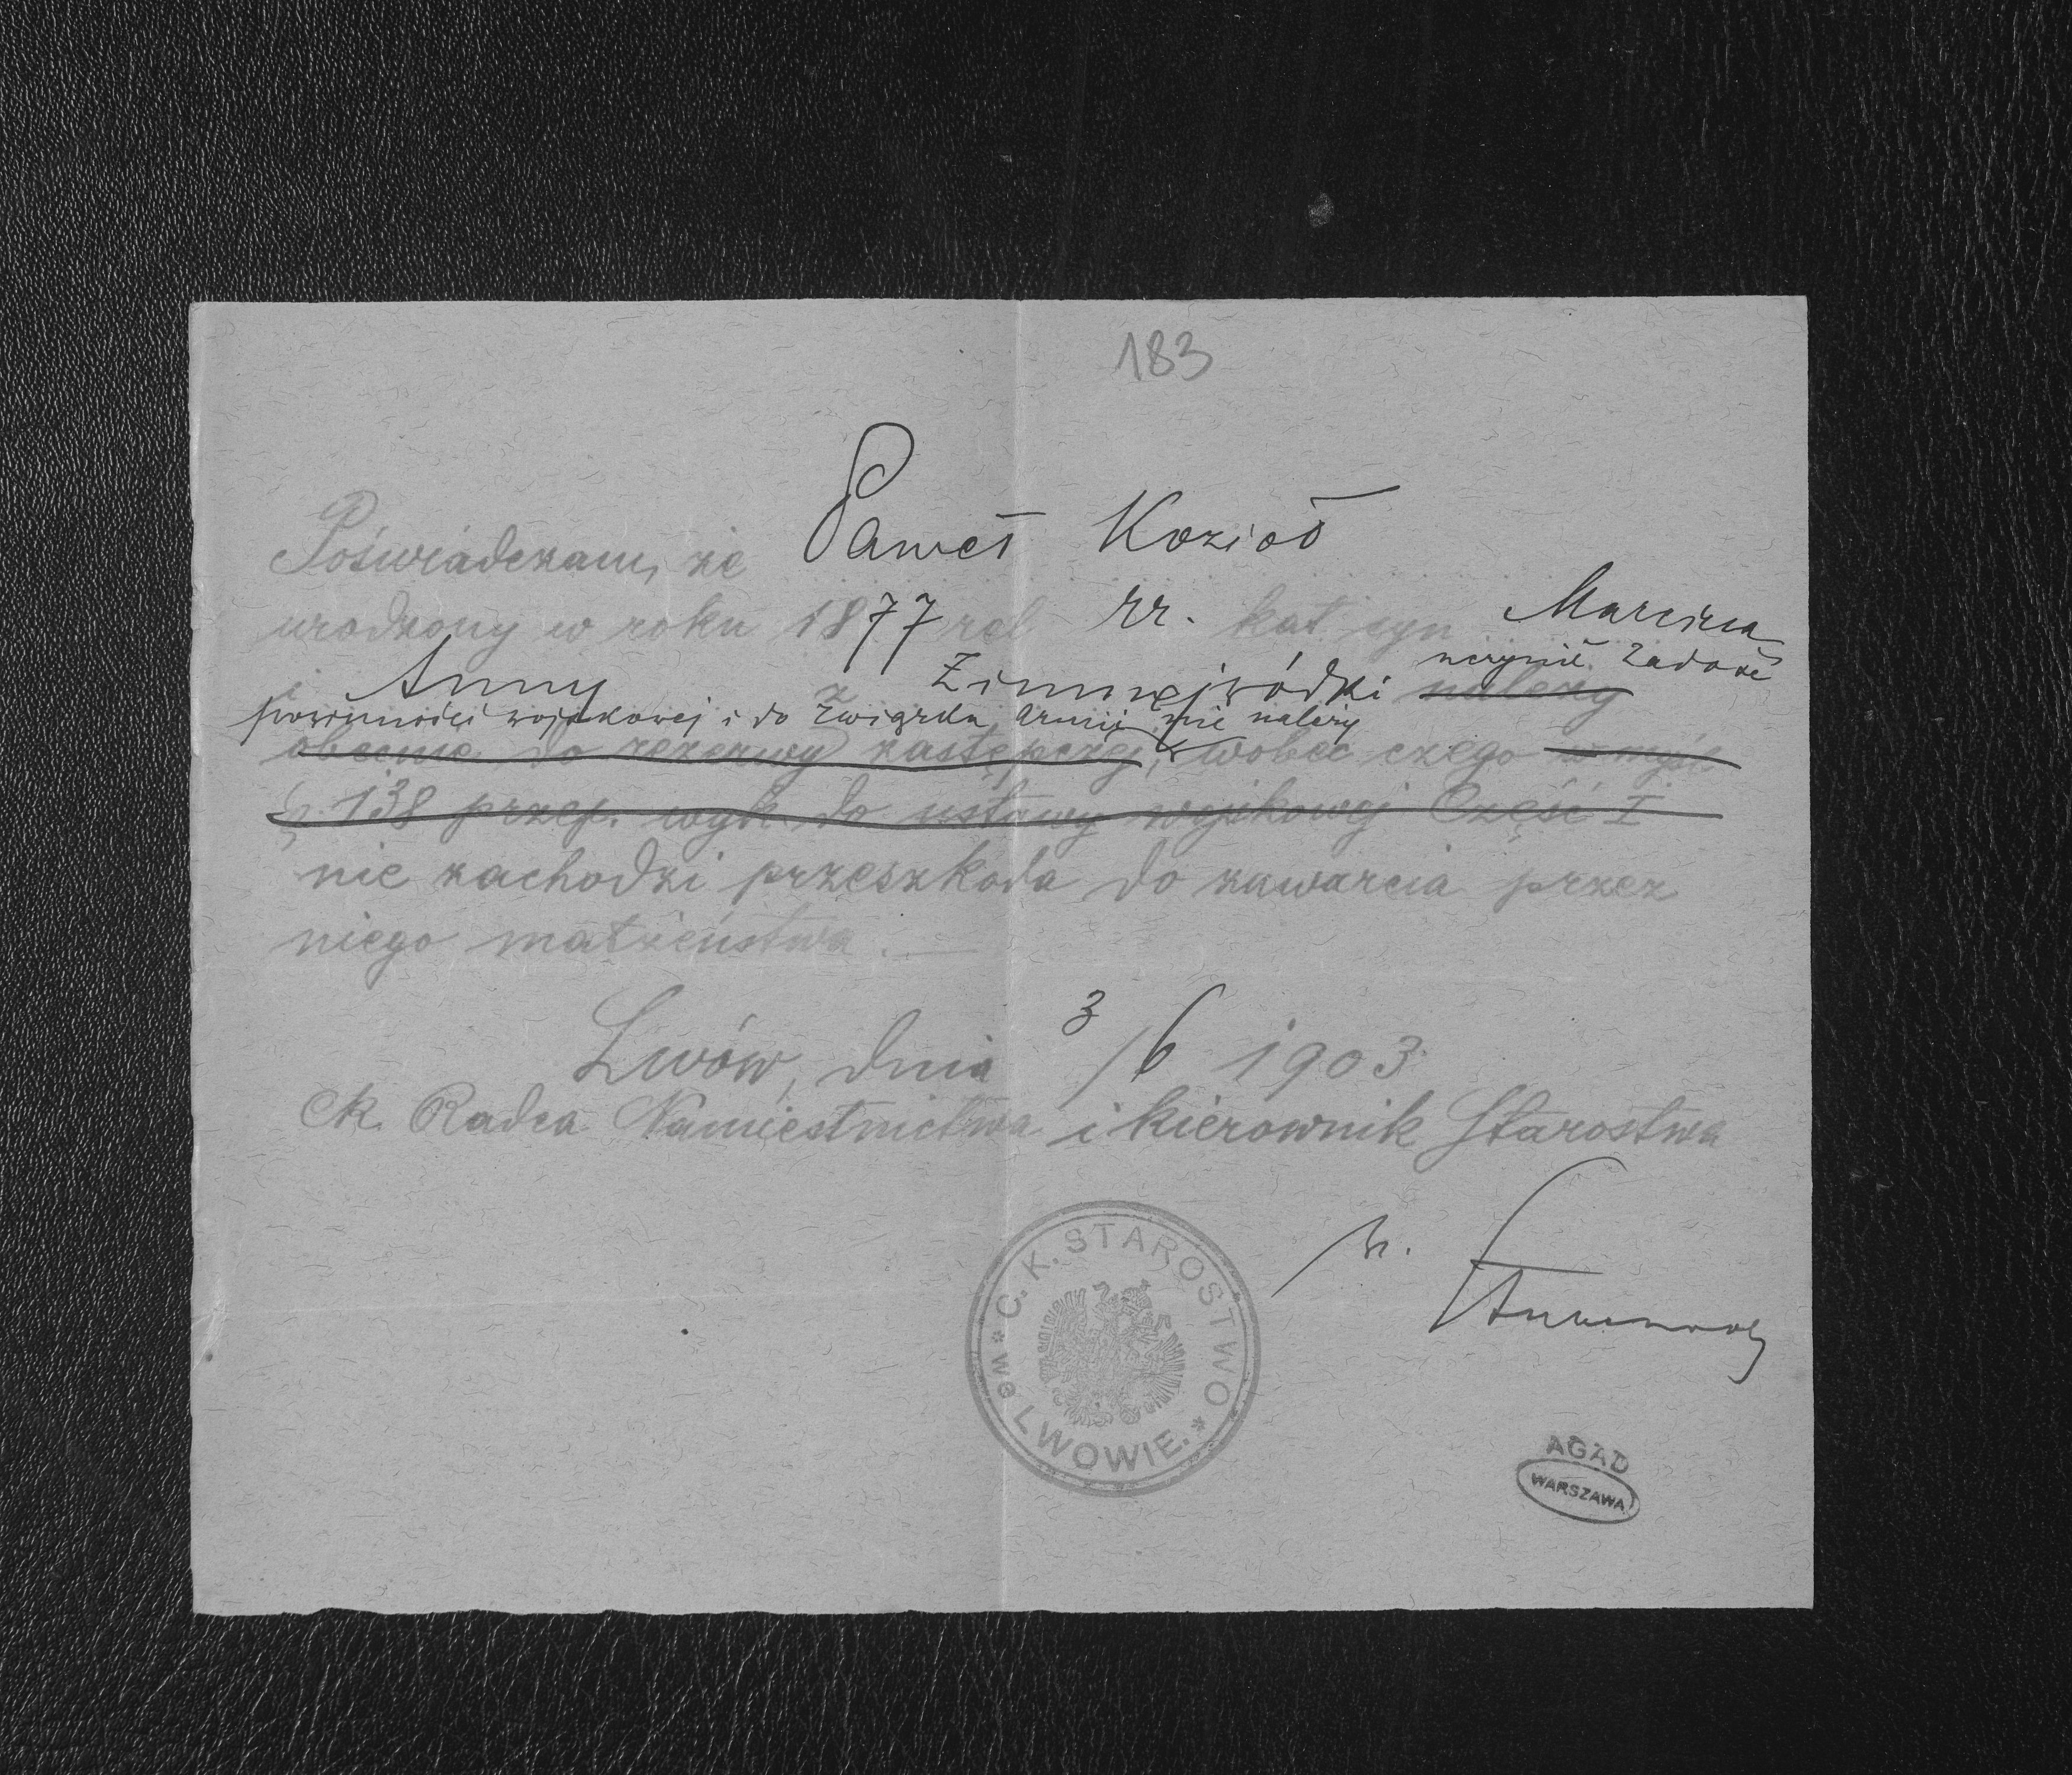 183
Poświadczam, że Paweł Kozioł
urodzony w roku 1877 rel rz. kat. syn Marcina
uczynił zadość
i Anny z Zimnejwódki należy
powinności wojskowej i do związku armii nie należy
obecnie do rezerwy zastępczej, wobec czego w myśl
§. 138 przep. wyk. do ustawy wojskowej Część I
nie zachodzi przeszkoda do zawarcia przez
niego małżeństwa. —
Lwów, dnia 3/6 1903
Ck. Radca Namiestnictwa i kierownik Starostwa
C. K. STAROSTWO
we LWOWIE.
AGAD
WARSZAWA